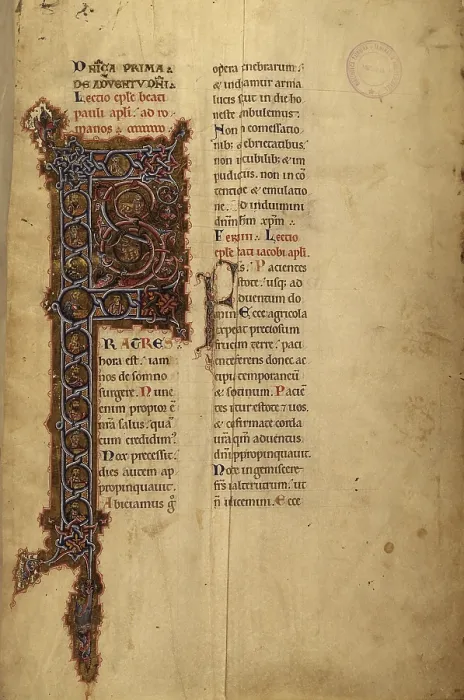 DNICA PRIMA.
DE ADVENTV DNI.
Lectio eple beati
pauli apli. ad ro
manos.
RATRES
hora est. iam
nos de somno
surgere. Nunc
enim propior ē
nrā salus. quā
cum credidim?
Nox precessit.
dies autem ap
propinquauit.
Abiciamus g̊
opera enebrarum.
& ind amur arma
lucis ut in die ho
neste mbulemus.
Non comessatio
nib; ebrietatibus.
non cubilib; & im
pudicus. non in cō
tentiōe & emulatio
ne. d induimini
dnm hm xpm.
Feria. Lectio
eple ati iacobi apli.
s. Pacientes
stote. usq; ad
duentum do
mini Ecce agricola
xpeat preciosum
fructm terre. paci
enter ferens donec ac
cipi temporaneū
& sotinum. Paciē
tes itur estote & uos.
& cōfirmate corda
ura qm aduentus
dni ppropinquauit.
Nolite ingemiscere
frs alterutrum. ut
n iudicemini. Ecce